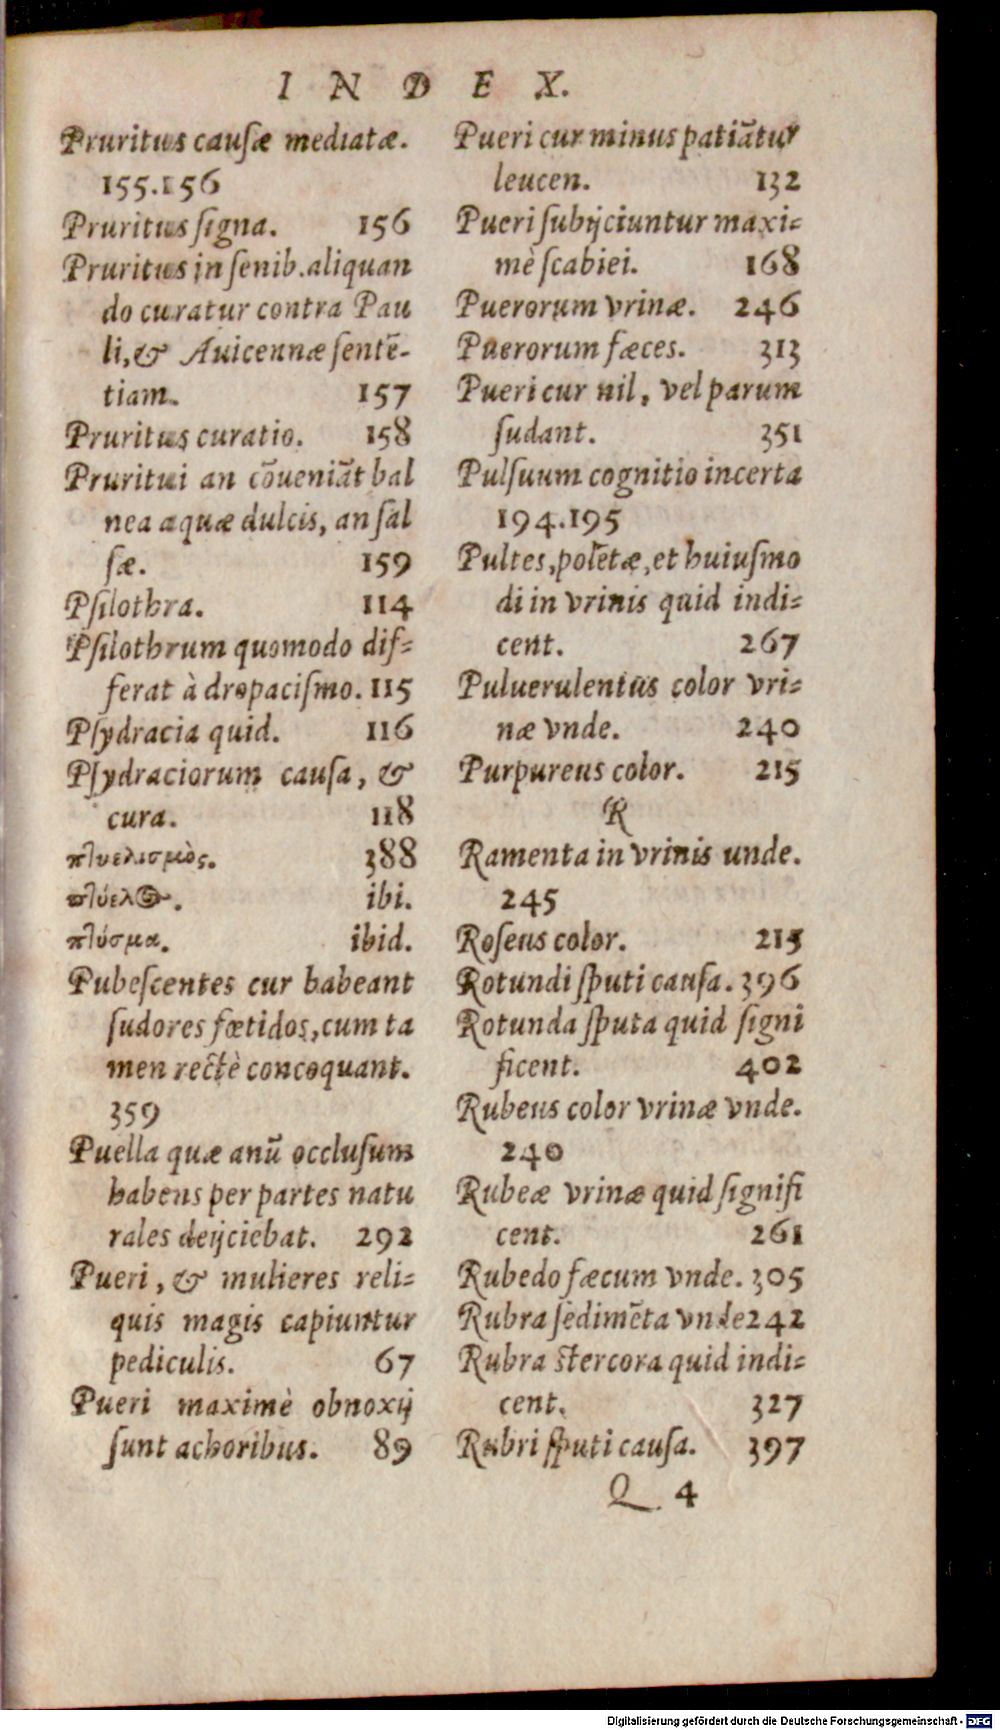 INDEX.
Pruritus cauſæ mediatæ.
155.156
Pruritus ſigna. 156
Pruritus in ſenib.aliquan
do curatur contra Pau
li,& Auicennæ ſentē-
tiam. 157
Pruritus curatio. 158
Pruritui an cōueniāt bal
nea aquæ dulcis, an ſal
ſæ. 159
Pſilothra. 114
Pſilothrum quomodo dif=
ferat à dropaciſmo. 115
Pſydracia quid. 116
Pſydraciorum cauſa, &
cura. 118
πτυελισμὸς. 388
πτύελος. ibi.
πτύσμα. ibid.
Pubeſcentes cur habeant
ſudores fœtidos,cum ta
men rectè concoquant.
359
Puella quæ anū occluſum
habens per partes natu
rales deijciebat. 292
Pueri, & mulieres reli=
quis magis capiuntur
pediculis. 67
Pueri maximè obnoxij
ſunt achoribus. 89
Pueri cur minus patiātur
leucen. 132
Pueri ſubijciuntur maxi=
mè ſcabiei. 168
Puerorum vrinæ. 246
Puerorum fæces. 313
Pueri cur nil, vel parum
ſudant. 351
Pulſuum cognitio incerta
194.195
Pultes,polētæ,et huiuſmo
di in vrinis quid indi=
cent. 267
Puluerulentus color vri=
næ vnde. 240
Purpureus color. 215
R
Ramenta in vrinis unde.
245
Roſeus color. 215
Rotundi ſputi cauſa. 396
Rotunda ſputa quid ſigni
ficent. 402
Rubeus color vrinæ vnde.
240
Rubeæ vrinæ quid ſignifi
cent. 261
Rubedo fæcum vnde. 305
Rubra ſedimēta vnde 242
Rubra ſtercora quid indi=
cent. 327
Rubri ſputi cauſa. 397
Q 4
Digitalisierung gefördert durch die Deutsche Forschungsgemeinschaft - DFG